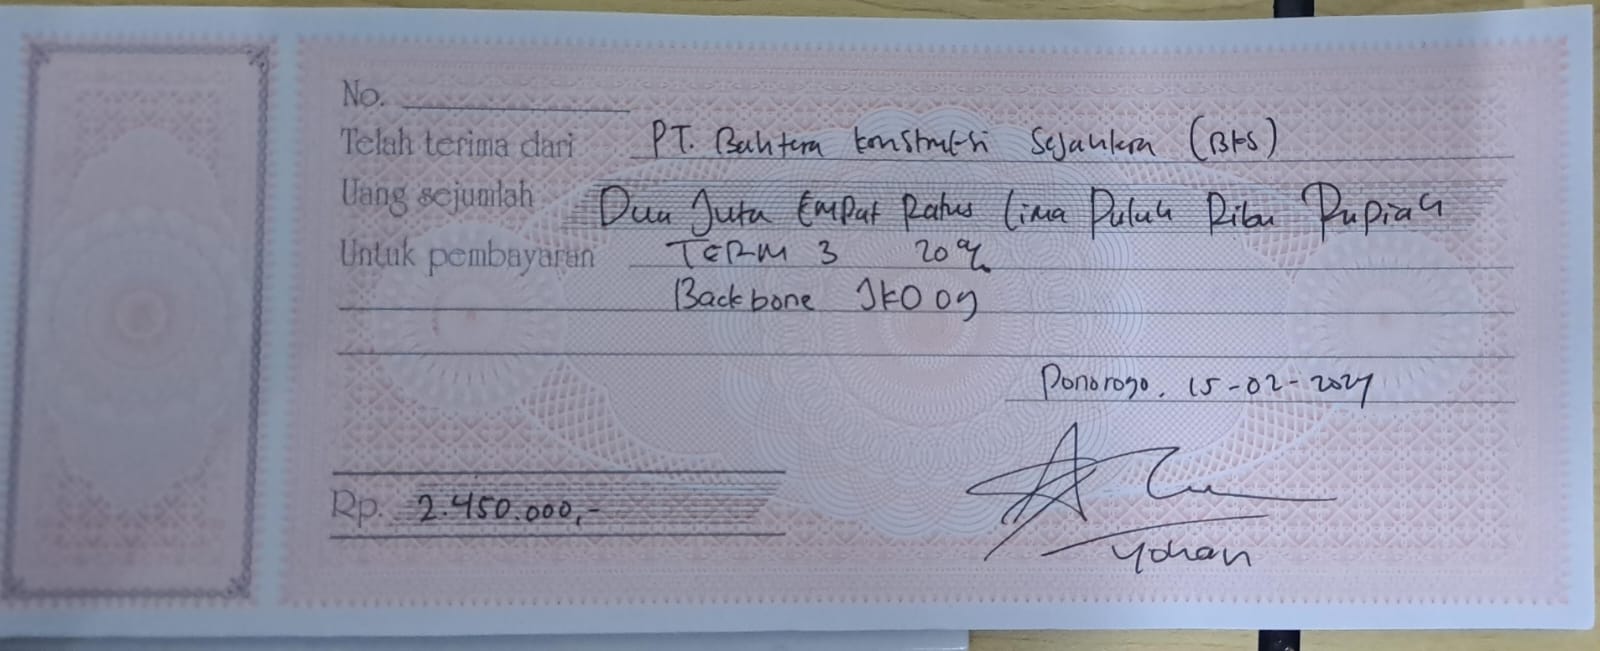 No.
Telah terima dari PT. Bahtera Konstruksi Sejahtera (BKS)
Uang sejumlah Dua Juta Empat Ratus Lima Puluh Ribu Rupiah
Untuk pembayaran TERM 3 20%
Backbone JKO 09
Ponorogo, 15-02-2024
Rp. 2.450.000,-
Yohan